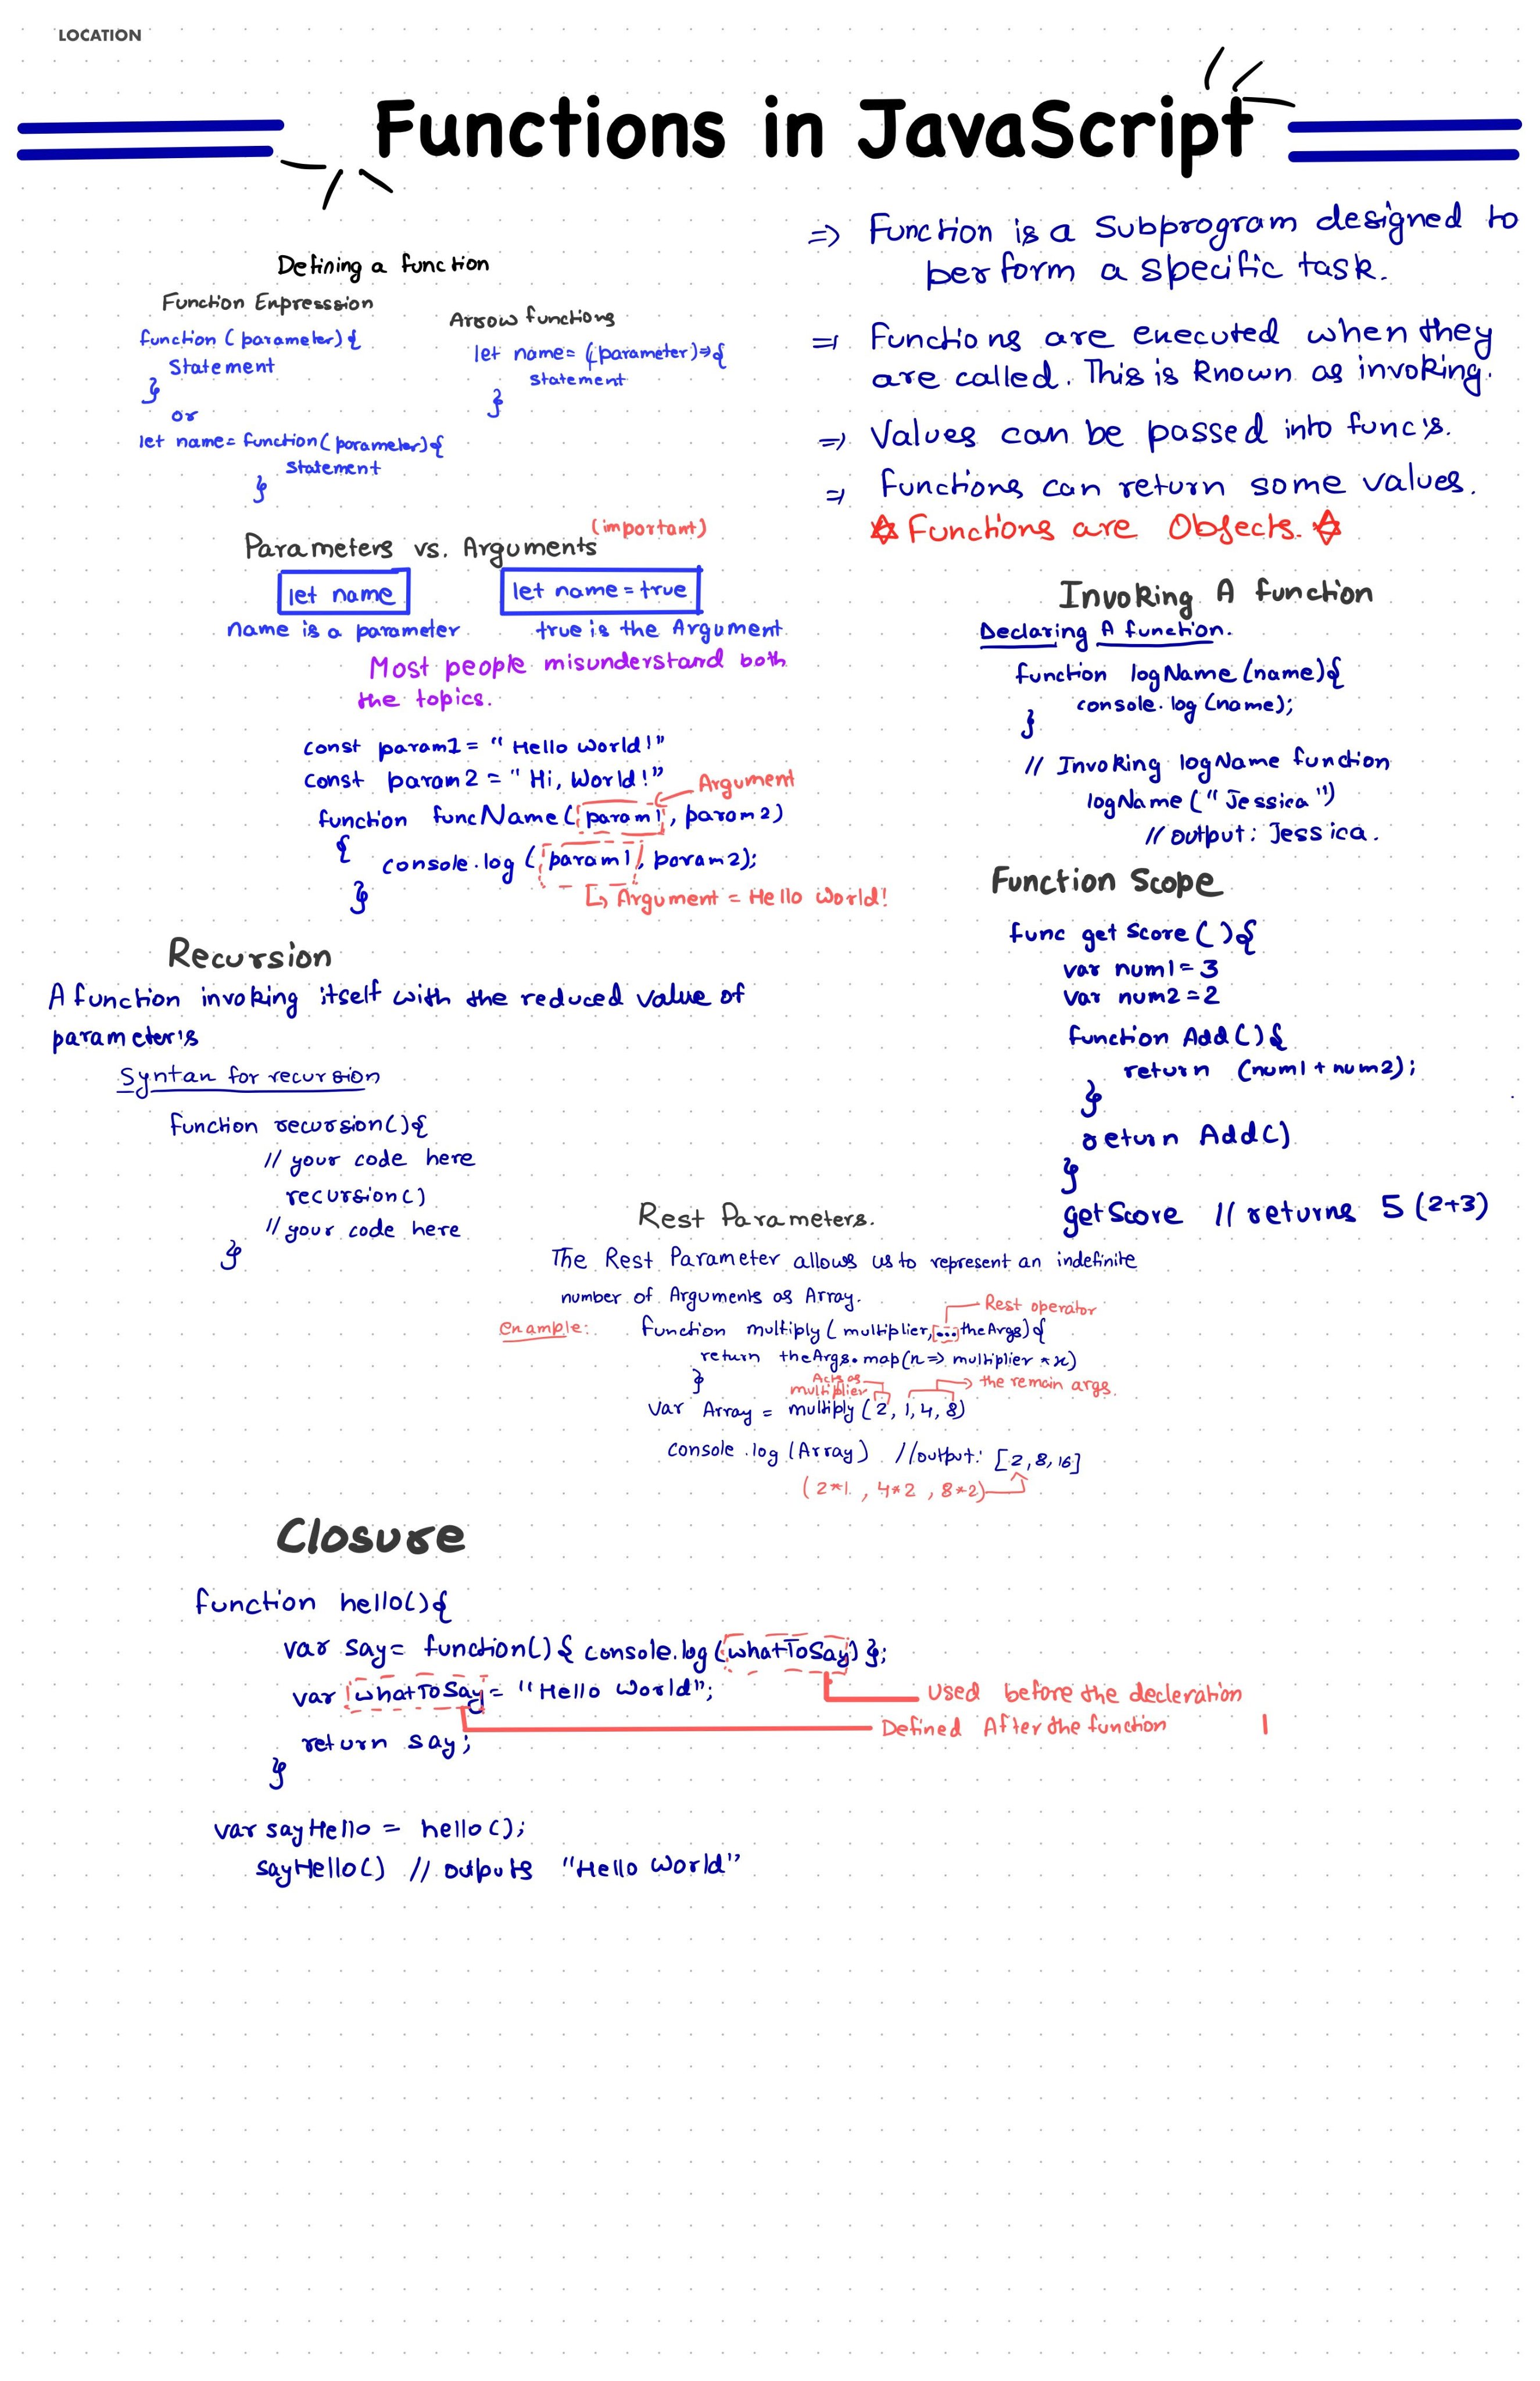 LOCATION
Functions in JavaScript
Defining a function
Function Expresssion
function (parameter){
Statement
}
or
let name= function(parameter){
statement
}
Arrow functions
let name= (parameter)=>{
statement
}
=> Function is a Subprogram designed to
perform a specific task.
=> Functions are executed when they
are called. This is known as invoking.
=> Values can be passed into func's.
=> functions can return some values.
Functions are Objects.
Parameters vs. Arguments (important)
let name
let name = true
name is a parameter
true is the Argument
Most people misunderstand both
the topics.
const param1 = "Hello world!"
const param2 = "Hi, World!"
Argument
function funcName(param1, param2)
{
console.log (param1, param2);
}
Argument = Hello world!
Invoking A function
Declaring A function.
function logName (name){
console.log (name);
}
// Invoking logName function
logName ("Jessica")
// output: Jessica.
Function Scope
func getScore(){
var num1 = 3
var num2 = 2
function Add(){
return (num1 + num2);
}
return Add()
}
getScore // returns 5 (2+3)
Recursion
A function invoking itself with the reduced value of
parameter's
Syntax for recursion
function recursion(){
// your code here
recursion()
// your code here
}
Rest Parameters.
The Rest Parameter allows us to represent an indefinite
number of Arguments as Array.
Rest operator
example:
function multiply(multiplier,...theArgs){
return theArgs.map(x=> multiplier *x)
}
Acts as
multiplier
the remain args.
var Array = multiply(2, 1, 4, 8)
console.log(Array) //output: [2, 8, 16]
(2*1, 4*2, 8*2)
Closure
function hello(){
var say= function(){ console.log(whatToSay) };
var whatToSay= "Hello World";
Used before the decleration
Defined After the function
return say;
}
var sayHello = hello();
sayHello() // outputs "Hello World"